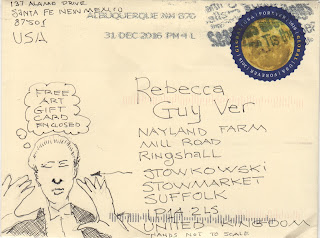 137 ALAMO DRIVE
SANTA FE NEW MEXICO
87501
USA
ALBUQUERQUE NM 870
31 DEC 2016 PM 4 L
FREE
ART
GIFT
CARD
ENCLOSED
Rebecca
Guy Ver
NAYLAND FARM
MILL ROAD
Ringshall
STOWKOWSKI
STOWMARKET
SUFFOLK
UNITED KINGDOM
HANDS NOT TO SCALE